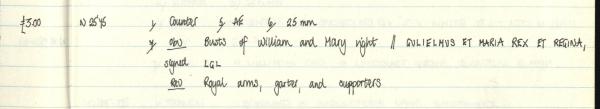 £3.00 N 2545 1/ Counter 2/ AE 3/ 25 mm
4/ obv Busts of William and Mary right // GULIELMUS ET MARIA REX ET REGINA,
signed LGL
rev Royal arms, garter, and supporters